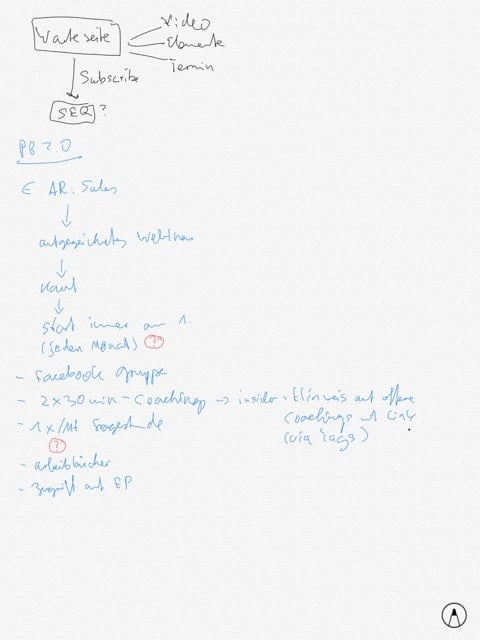 Warteseite
Video
Elemente
Termin
Subscribe
SEQ ?
PB 2.0
E AR: Sales
aufgezeichnetes Webinar
Kauf
Start immer am 1.
(jeden Monat) ?
- Facebook Gruppe
- 2x30min - Coachings → insider - Hinweis auf offene
Coachings mit Link
(via Tags)
- 1x/Mt Fragestunde
- Arbeitsbücher
- Zugriff auf EP